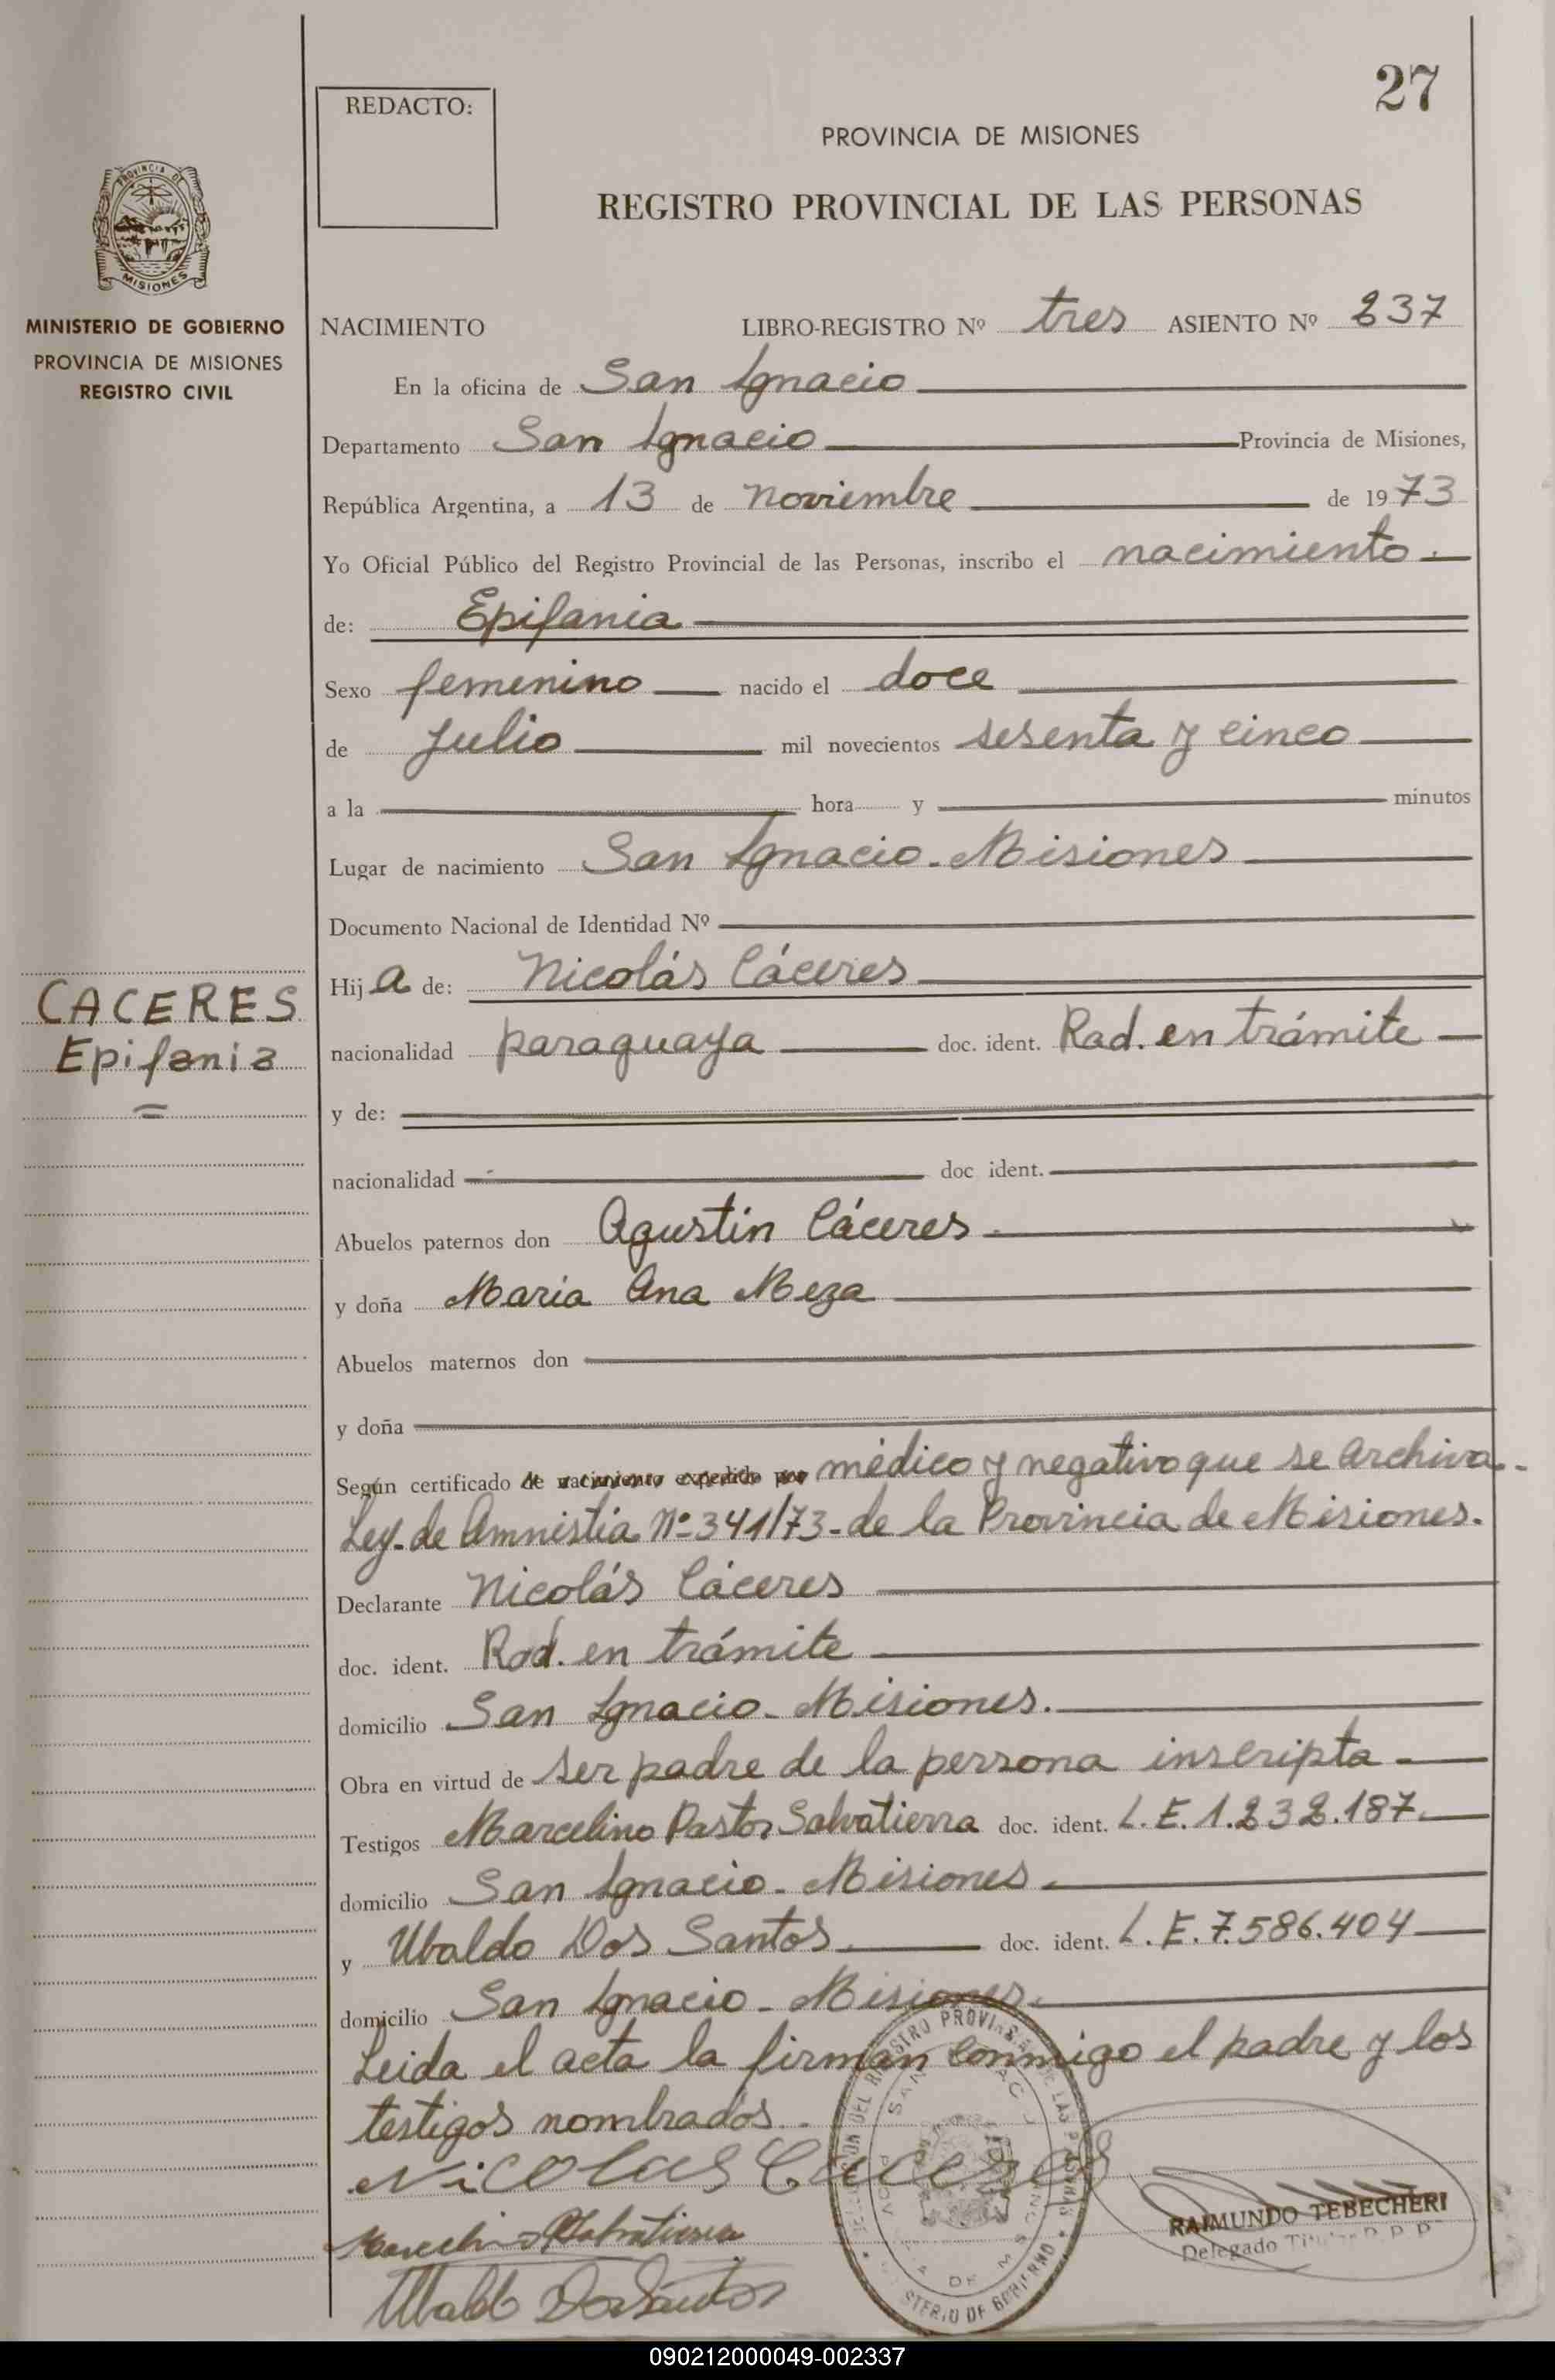 27
REDACTO:
PROVINCIA DE MISIONES
REGISTRO PROVINCIAL DE LAS PERSONAS
PROVINCIA DE
MISIONES
MINISTERIO DE GOBIERNO
PROVINCIA DE MISIONES
REGISTRO CIVIL
NACIMIENTO LIBRO-REGISTRO Nº tres ASIENTO Nº 237
En la oficina de San Ignacio
Departamento San Ignacio Provincia de Misiones,
República Argentina, a 13 de noviembre de 1973
Yo Oficial Público del Registro Provincial de las Personas, inscribo el nacimiento.
de: Epifania
Sexo femenino nacido el doce
de Julio mil novecientos sesenta y cinco
a la hora y minutos
Lugar de nacimiento San Ignacio. Misiones
Documento Nacional de Identidad Nº
Hija de: Nicolás Cáceres
CACERES
Epifania
nacionalidad paraguaya doc. ident. Rad. en trámite
y de:
nacionalidad doc ident.
Abuelos paternos don Agustin Cáceres
y doña Maria Ana Meza
Abuelos maternos don
y doña
Según certificado de nacimiento expedido por médico y negativo que se archiva.-
Ley-de Amnistia Nº 341/73-de la Provincia de Misiones.
Declarante Nicolás Cáceres
doc. ident. Rad. en trámite
domicilio San Ignacio. Misiones.
Obra en virtud de ser padre de la persona inscripta
Testigos Marcelino Pastor Salvatierra doc. ident. L.E. 1.232.187.
domicilio San Ignacio. Misiones.
y Ubaldo Dos Santos. doc. ident. L.E. 7.586.404
domicilio San Ignacio - Misiones.
Leida el acta la firman conmigo el padre y los
testigos nombrados.
Nicolas Caceres
RAIMUNDO TEBECHERI
Delegado
Ubaldo DosSantos
090212000049-002337